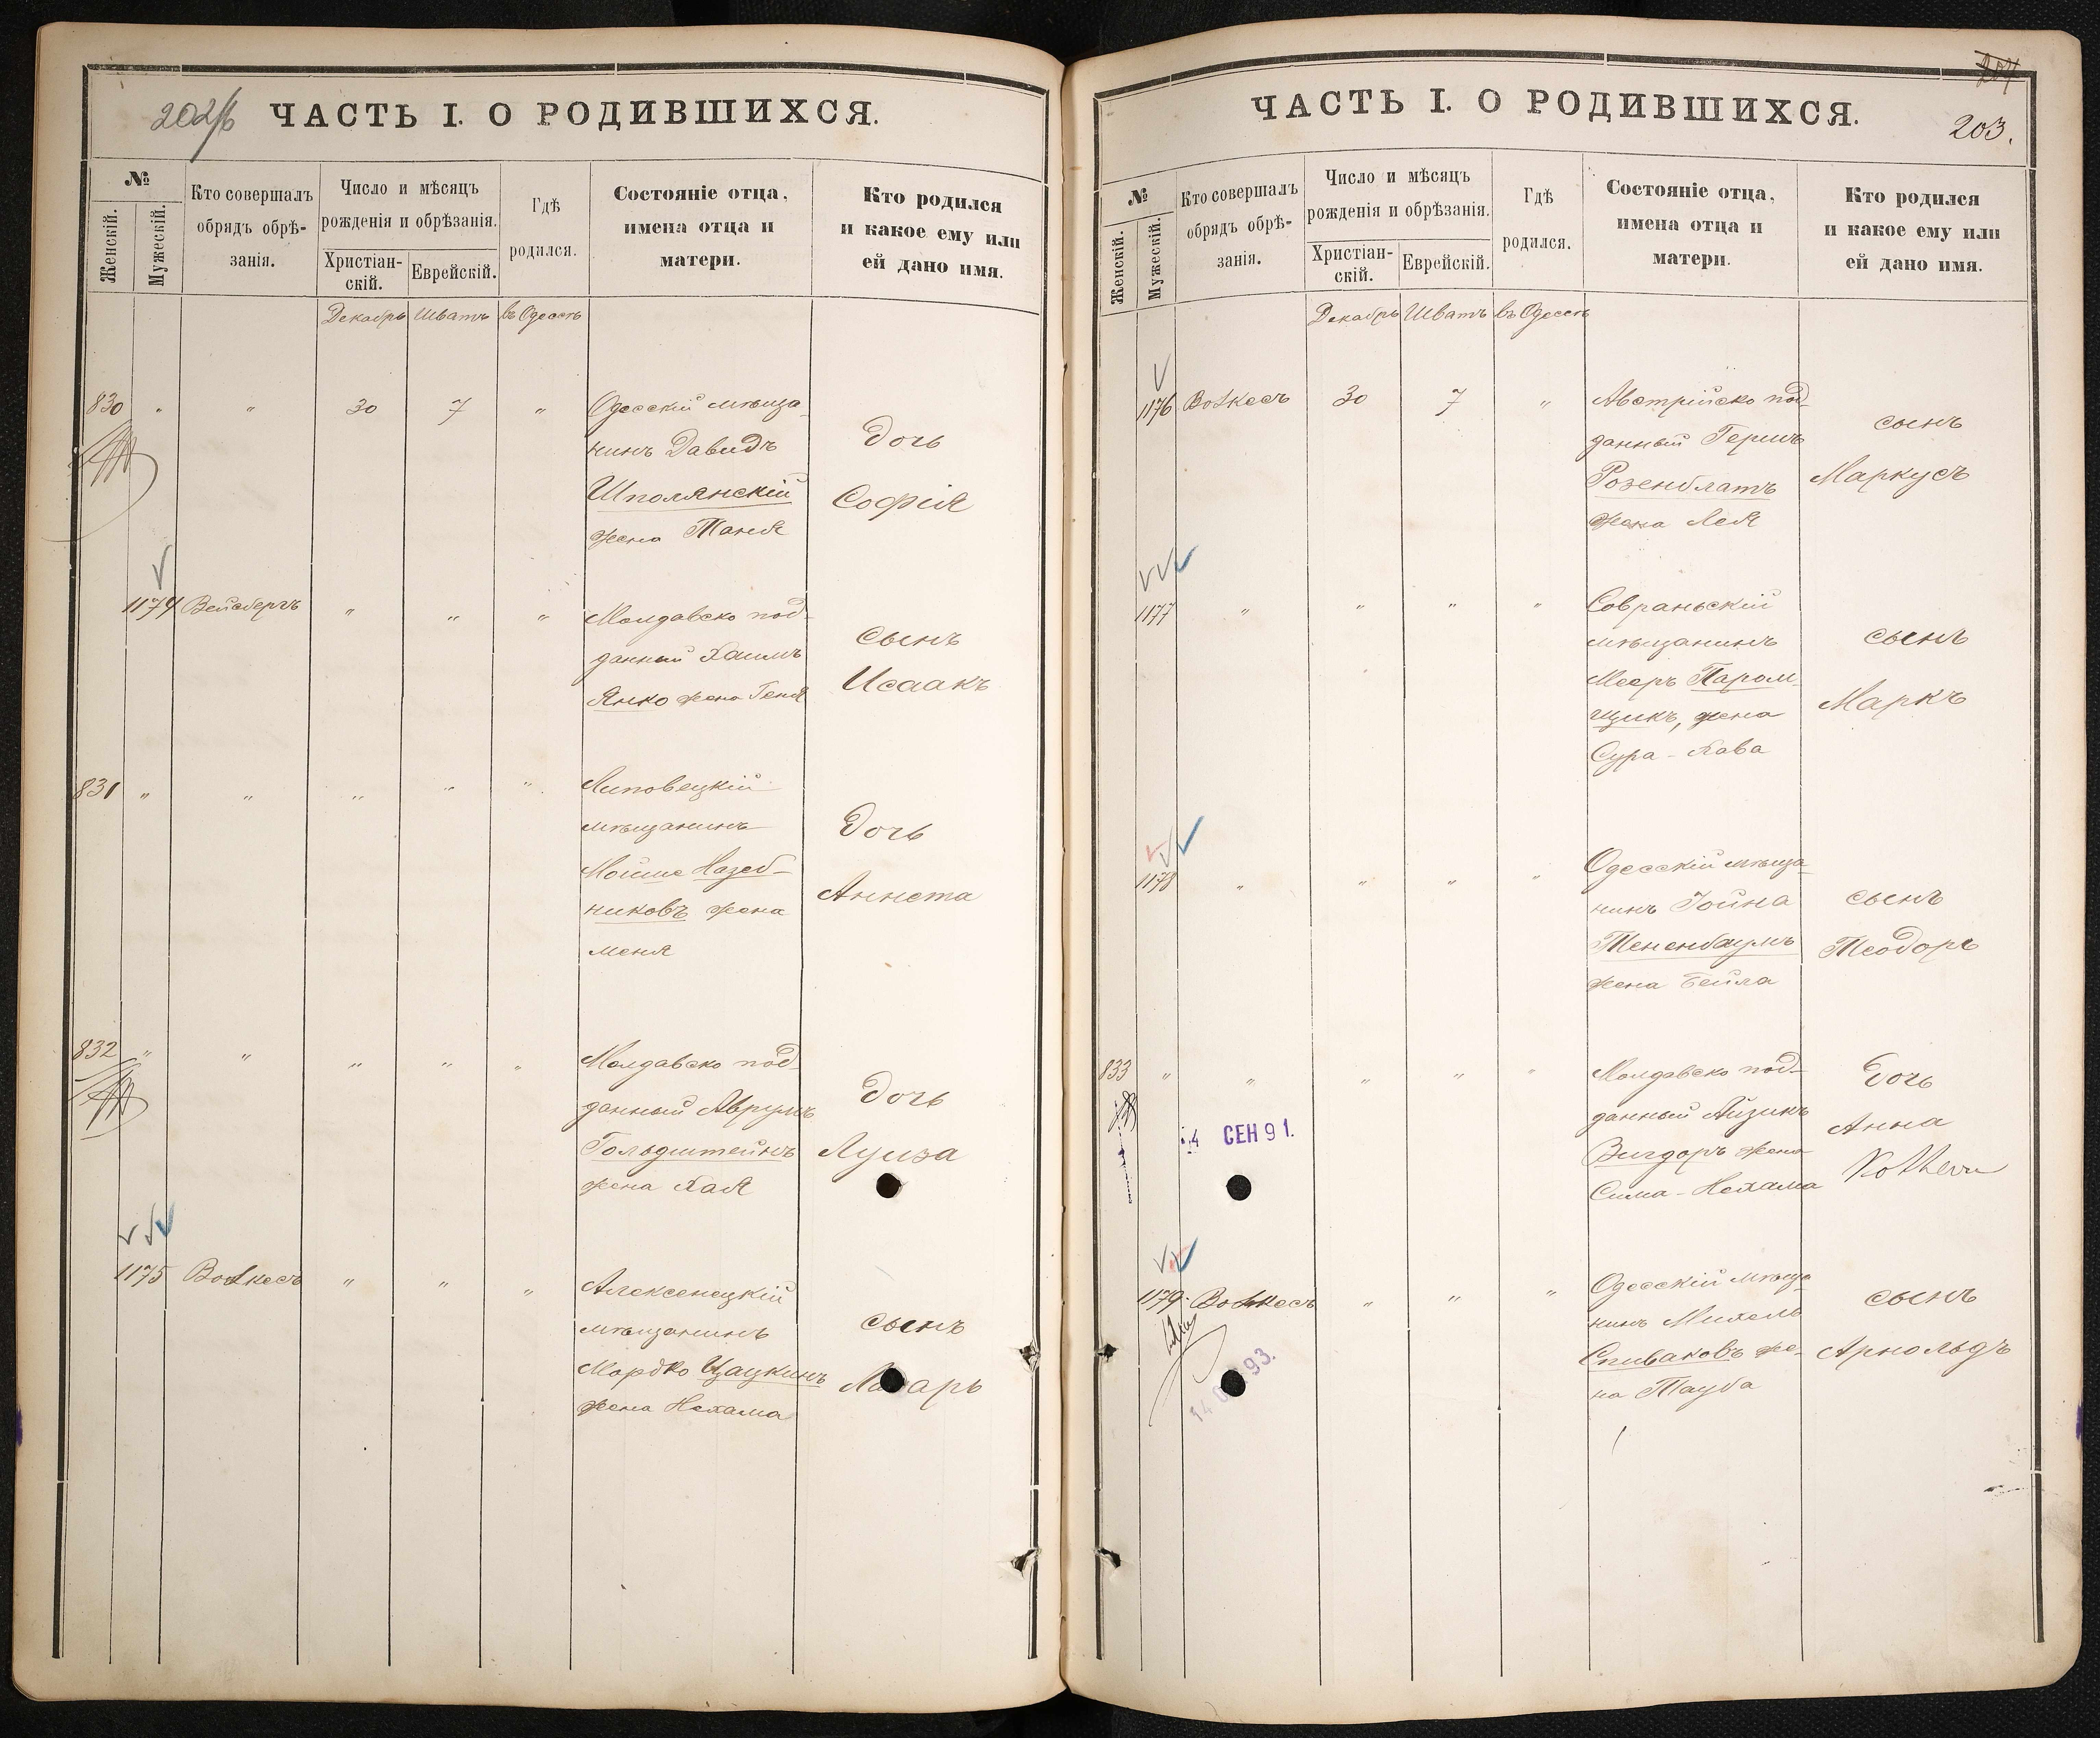 202/б ЧАСТЬ I. О РОДИВШИХСЯ.
№
Женскій.
Мужескій.
Кто совершалъ
обрядъ обрѣ-
занія.
Число и мѣсяцъ
рожденія и обрѣзанія.
Христіан-
скій.
Еврейскій.
Гдѣ
родился.
Состояніе отца,
имена отца и
матери.
Кто родился
и какое ему или
ей дано имя.
Декабрь Шватъ въ Одессѣ
830 " " 30 7 "
Одесскій мѣща-
нинъ Давидъ
Шполянскій
жена Таня
дочь
Софія
1174 Вейсбергъ " " "
Молдавско под-
данный Хаимъ
Янко жена Геня
сынъ
Исаакъ
831 " " " " "
Липовецкій
мѣщанинъ
Мойше Назед-
никовъ жена
Меня
дочь
Аннета
832 " " " " "
Молдавско под-
данный Аврумъ
Гольдштейнъ
жена Хая
дочь
Луиза
1175 " " "
Алексенецкій
мѣщанинъ
Мордко Цацкинъ
жена Нехама
сынъ
Лазарь
204
ЧАСТЬ I. О РОДИВШИХСЯ.
203.
№
Женскій.
Мужескій.
Кто совершалъ
обрядъ обрѣ-
занія.
Число и мѣсяцъ
рожденія и обрѣзанія.
Христіан-
скій.
Еврейскій.
Гдѣ
родился.
Состояніе отца,
имена отца и
матери.
Кто родился
и какое ему или
ей дано имя.
Декабрь Шватъ въ Одессѣ
1176 30 7 "
Австрійско под-
данный Гершъ
Розенблатъ
жена Лея
сынъ
Маркусъ
1177 " " " "
Совраньскій
мѣщанинъ
Мееръ Паром-
щикъ, жена
Сура-Хава
сынъ
Маркъ
1178 " " " "
Одесскій мѣща-
нинъ Іойна
Тененбаумъ
жена Бейла
сынъ
Теодоръ
833 " " " " "
Молдавско под-
данный Айзикъ
Вигдоръ жена
Сима-Нехама
дочь
Анна
4 СЕН 91.
1179 " " "
Одесскій мѣща-
нинъ Михель
Спиваковъ же-
на Тауба
сынъ
Арнольдъ
93.